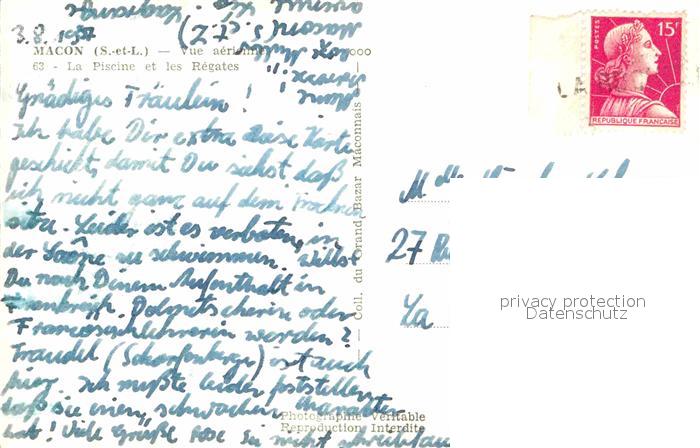 3.8.1957
MACON (S.-et-L.) — Vue aérienne
63 - La Piscine et les Régates
Gnädiges Fräulein!
Ich habe Dir extra diese Karte
geschickt, damit Du siehst daß
ich nicht ganz auf dem Trocknen
sitze. Leider ist es verboten, in
der Saône zu schwimmen. Willst
Du nach Deinem Aufenthalt in
Frankreich Dolmetscherin oder
Französischlehrerin werden?
Traudel (Scharfenberge) ist auch
hier. Ich mußte leider feststellen
daß sie einen schwachen Charakter
hat! Viele Grüße
Sei nicht
Macon (S.-et-L.)
Photographie Véritable
Reproduction Interdite
Coll. du Grand Bazar Maconnais
POSTES
15F
REPUBLIQUE FRANÇAISE
LA
M
27
La
privacy protection
Datenschutz